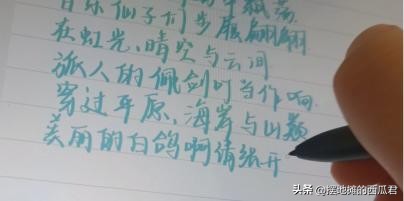 音乐仙子们步履翩翩
在虹光、晴空与云间
旅人的佩剑叮当作响
穿过平原、海岸与山巅
美丽的白鸽啊请张开
头条 @摆地摊的西瓜君